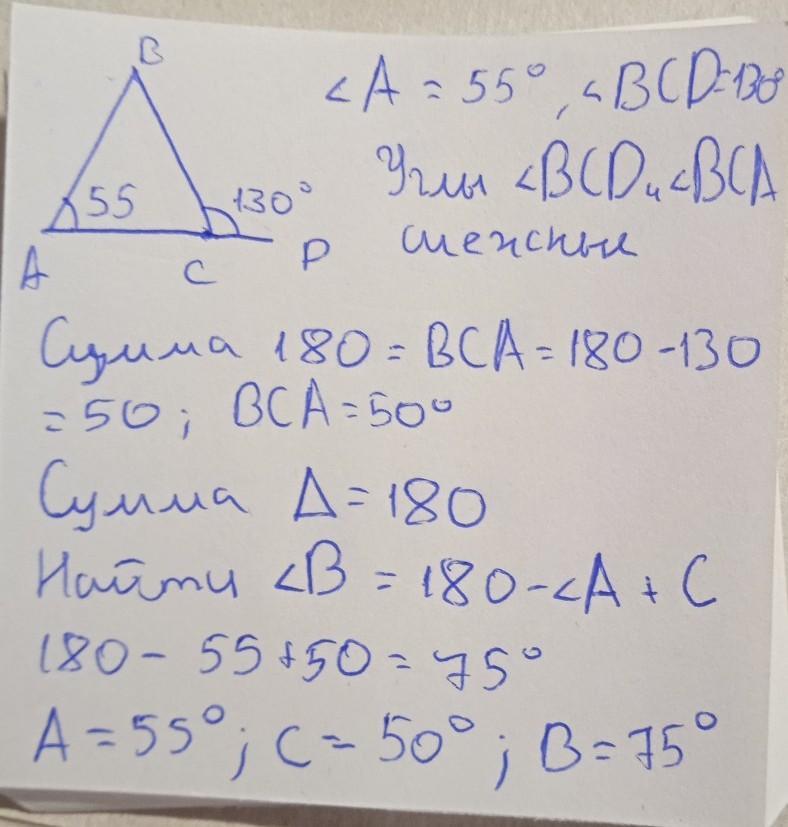 B
∠A = 55°, ∠BCD=130°
Углы ∠BCD и ∠BCA
55
130°
смежные
A
C
D
Сумма 180 = BCA = 180 - 130
= 50; BCA = 50°
Сумма Δ = 180
Найти ∠B = 180 - ∠A + C
180 - 55 + 50 = 75°
A = 55°; C = 50°; B = 75°